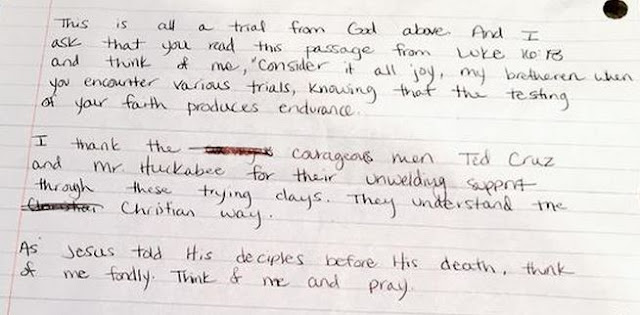 This is all a trial from God above. And I
ask that you read this passage from Luke 16:13
and think of me, "Consider it all joy, my bretheren when
you encounter various trials, knowing that the testing
of your faith produces endurance.
I thank the carageous men Ted Cruz
and Mr. Huckabee for their unwelding support
through these trying days. They understand the
Christian way.
As Jesus told His deciples before His death, think
of me fondly. Think of me and pray.